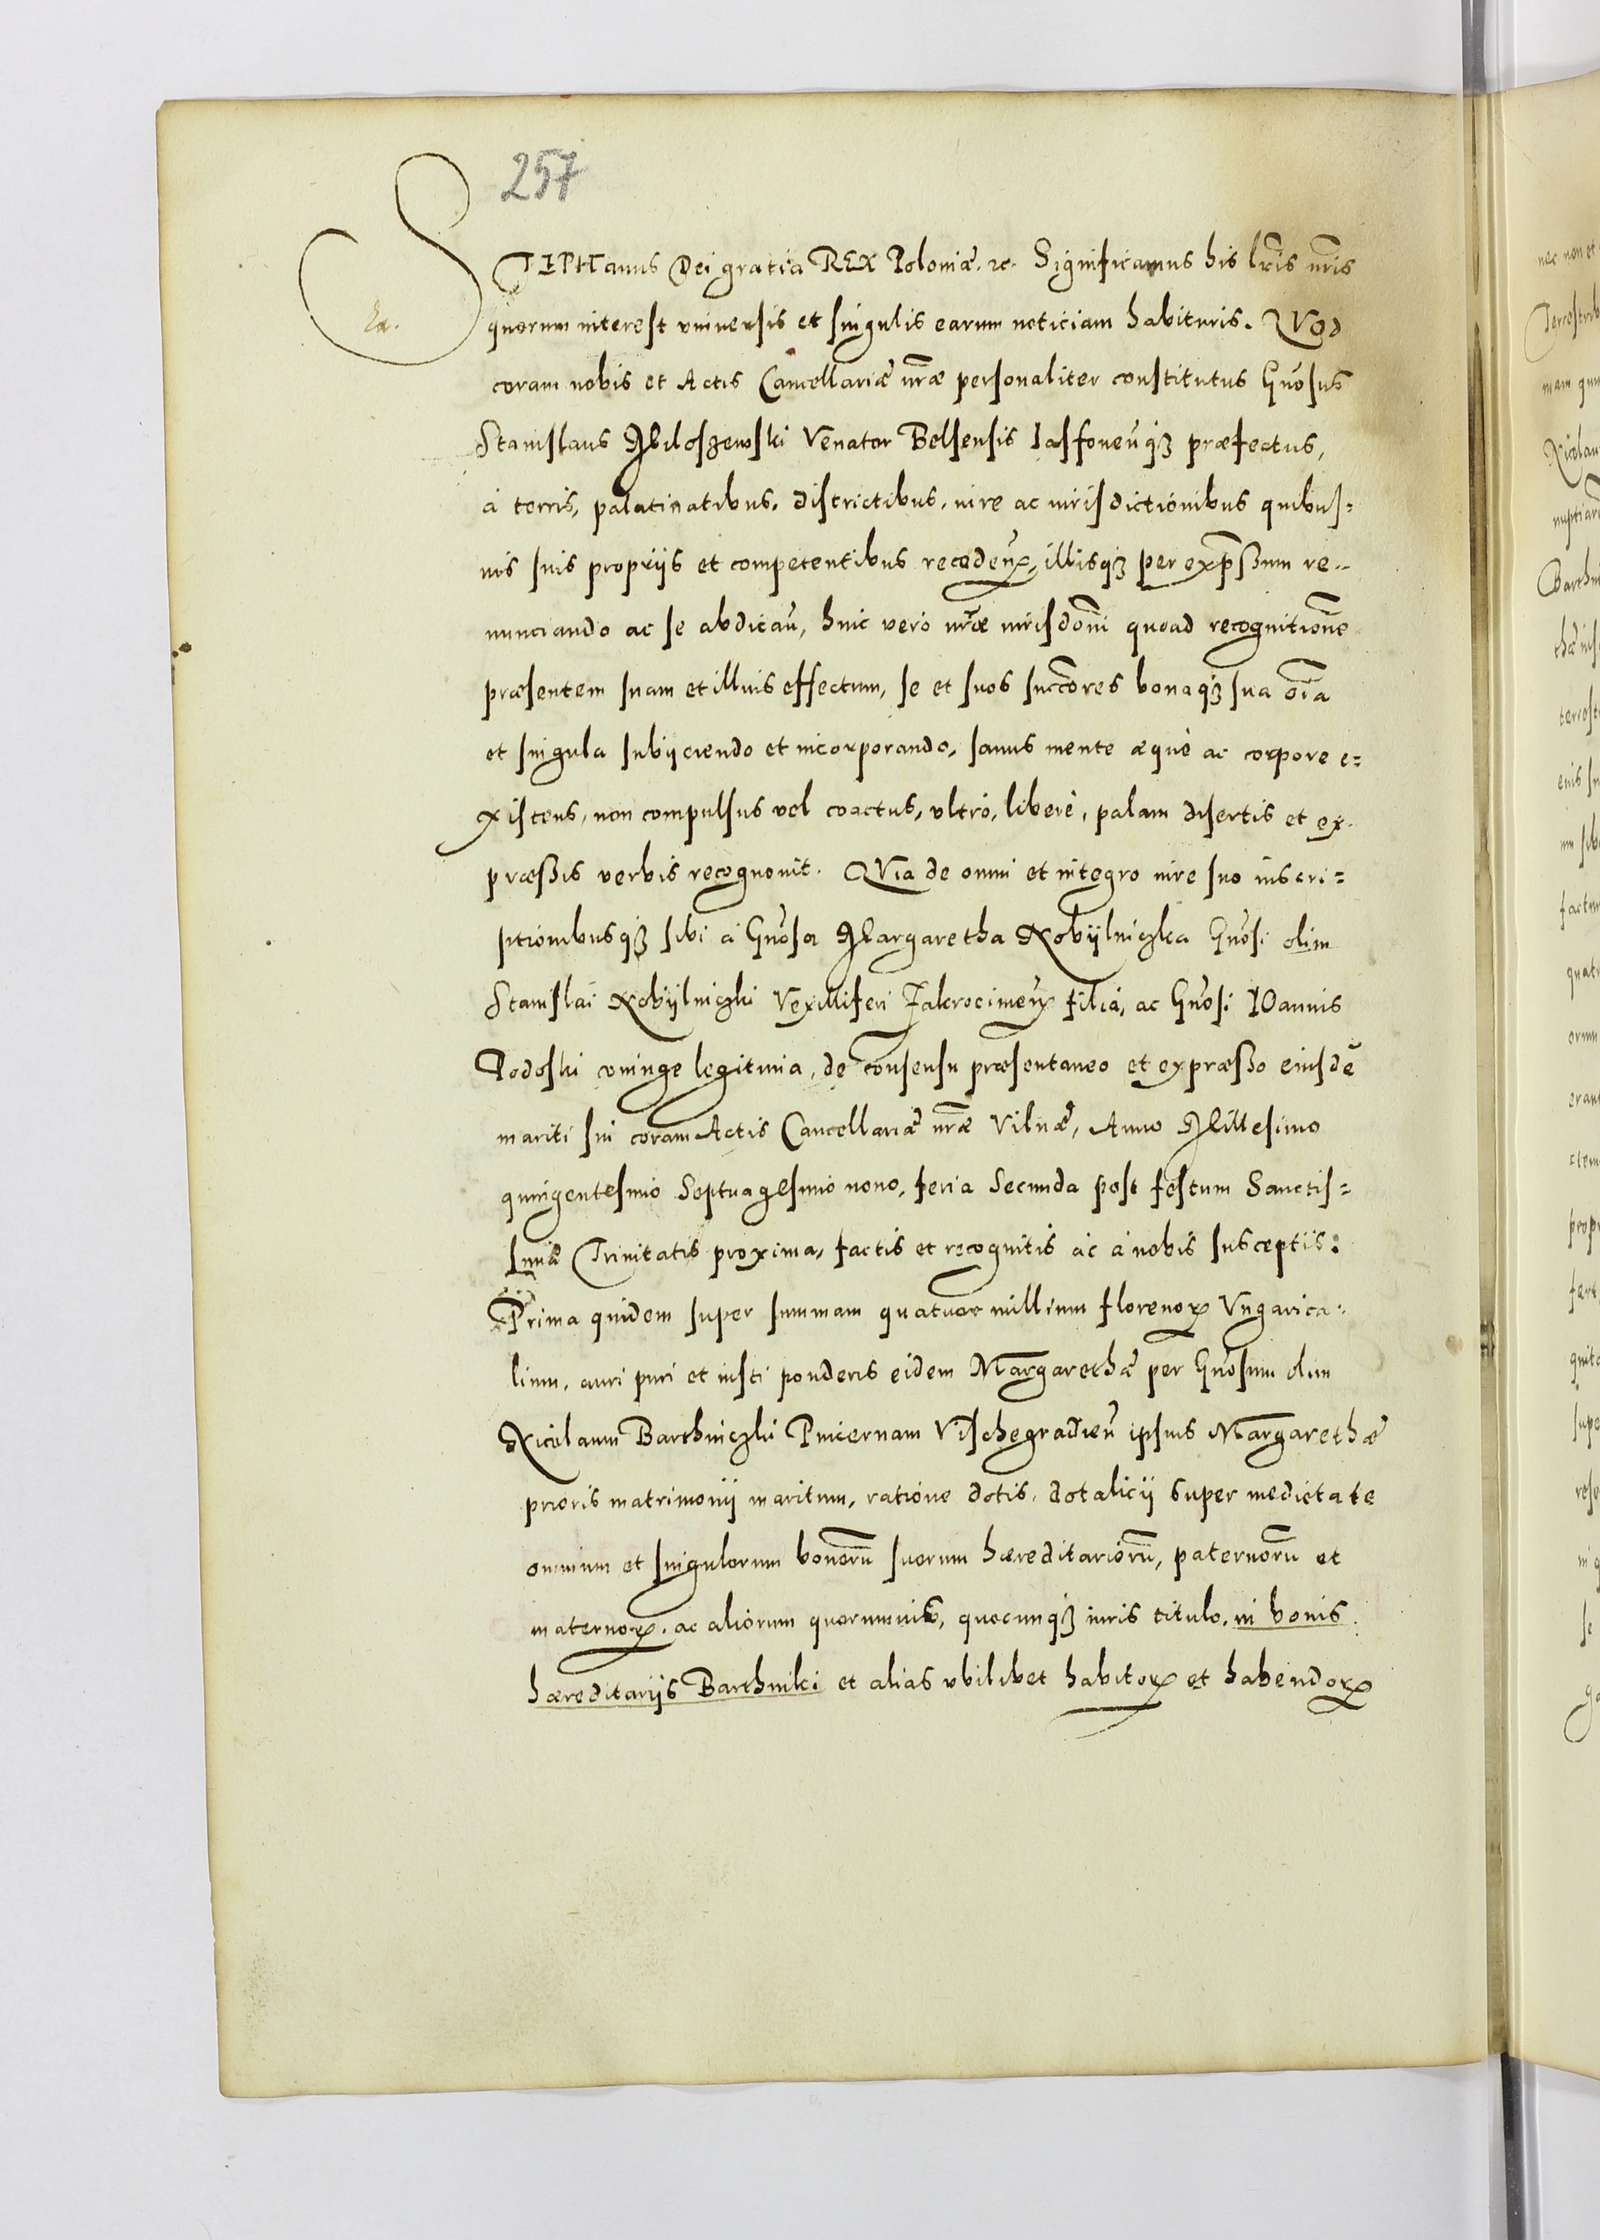 257
STEPHanus Dei gratia REX Poloniæ. ec. Significamus his lr̃is nr̃is
quorum interest vniuersis et singulis earum noticiam habituris. QVod
coram nobis et Actis Cancellariæ nr̃æ personaliter constitutus Gn̄osus
Stanislaus Miloszewski Venator Belsensis Iasfoneñ qȝ præfectus,
à terris, palatinatibus, districtibus, iure ac iurisdictionibus quibus=
uis suis proprijs et competentibus recedeñ, illisqȝ per exp̄ssum re=
nunciando ac se abdicaũ, huic vero nr̃æ iurisdoñi quoad recognitionẽ
præsentem suam et illius effectum, se et suos succ̃ores bonaqȝ sua oĩa
et singula subijciendo et incorporando, sanus mente æquè ac corpore e=
xistens, non compulsus vel coactus, vltrò, liberè, palam disertis et ex=
præssis verbis recognouit. QVia de omni et integro iure suo inscri=
ptionibusqȝ sibi à Gn̄osa Margaretha Kobijlniczka Gn̄osi olim
Stanislai Kobijlniczki Vexilliferi Zakrocimeñ filia, ac Gn̄osi IOannis
Podoski coniuge legitima, de consensu præsentaneo et expræsso eiusdẽ
mariti sui coram Actis Cancellariæ nr̃æ Vilnæ, Anno Millesimo
quingentesimo Septuagesimo nono, feria Secunda post festum Sanctis=
simæ Trinitatis proxima, factis et recognitis ac à nobis susceptis:
Prima quidem super summam quatuor millium florenoꝝ Vngarica=
lium, auri puri et iusti ponderis eidem Margarethæ per Gn̄osum olim
Nicolaum Barthniczki Pincernam Vischegradieñ ipsius Margarethæ
prioris matrimonij maritum, ratione dotis, dotalicij super medietate
omnium et singulorum bonorũ suorum hæreditariorũ, paternorũ et
maternoꝝ, ac aliorum quorumuis, quocunqȝ iuris titulo, in bonis
hæreditarijs Barthniki et alias vbilibet habitoꝝ et habendoꝝ